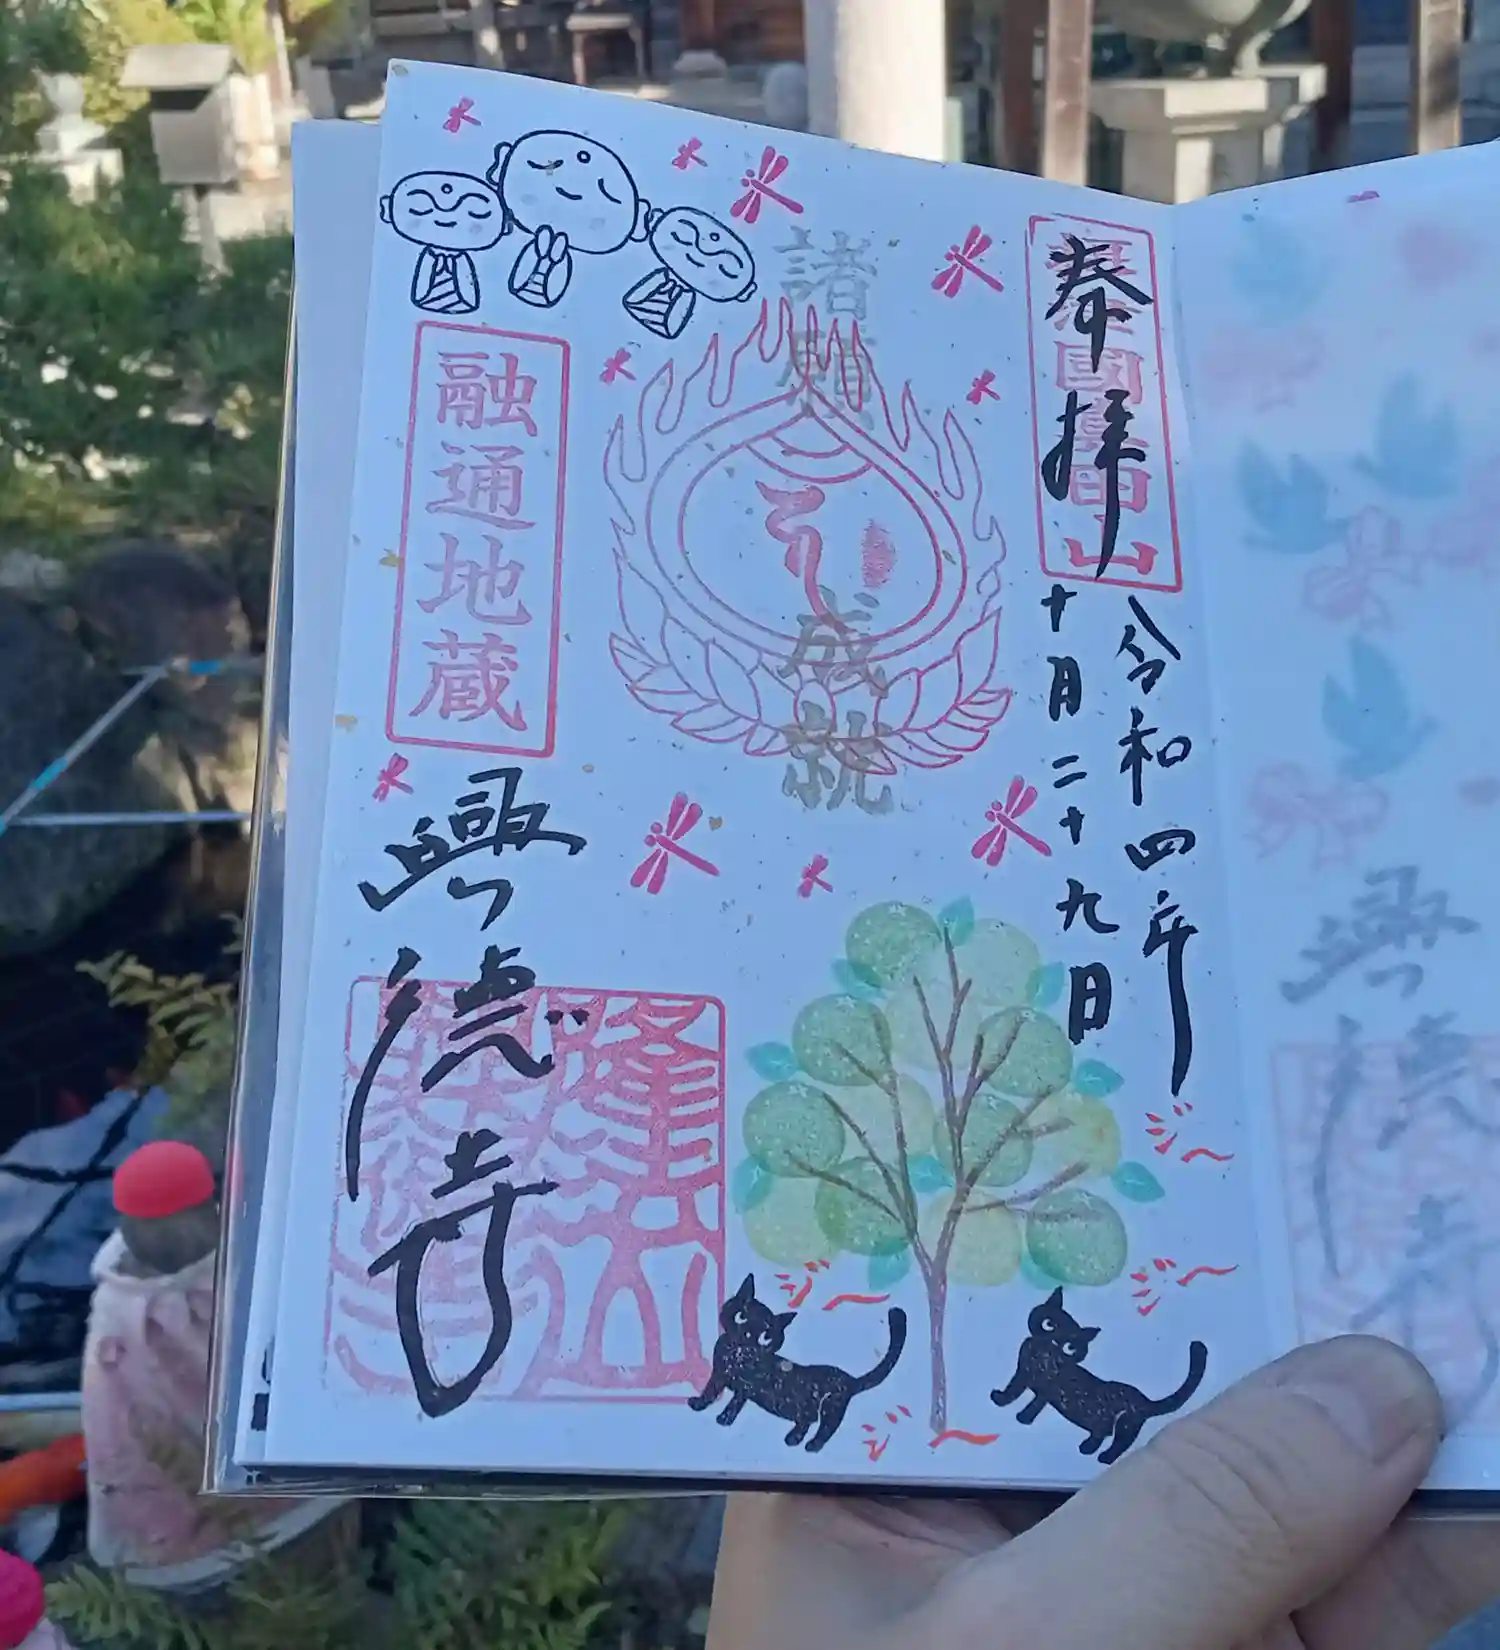 奉拝
國眞田山
令和四年
十月二十九日
諸願成就
融通地蔵
興徳寺
ジ〜
ジ〜
ジ〜
ジ〜